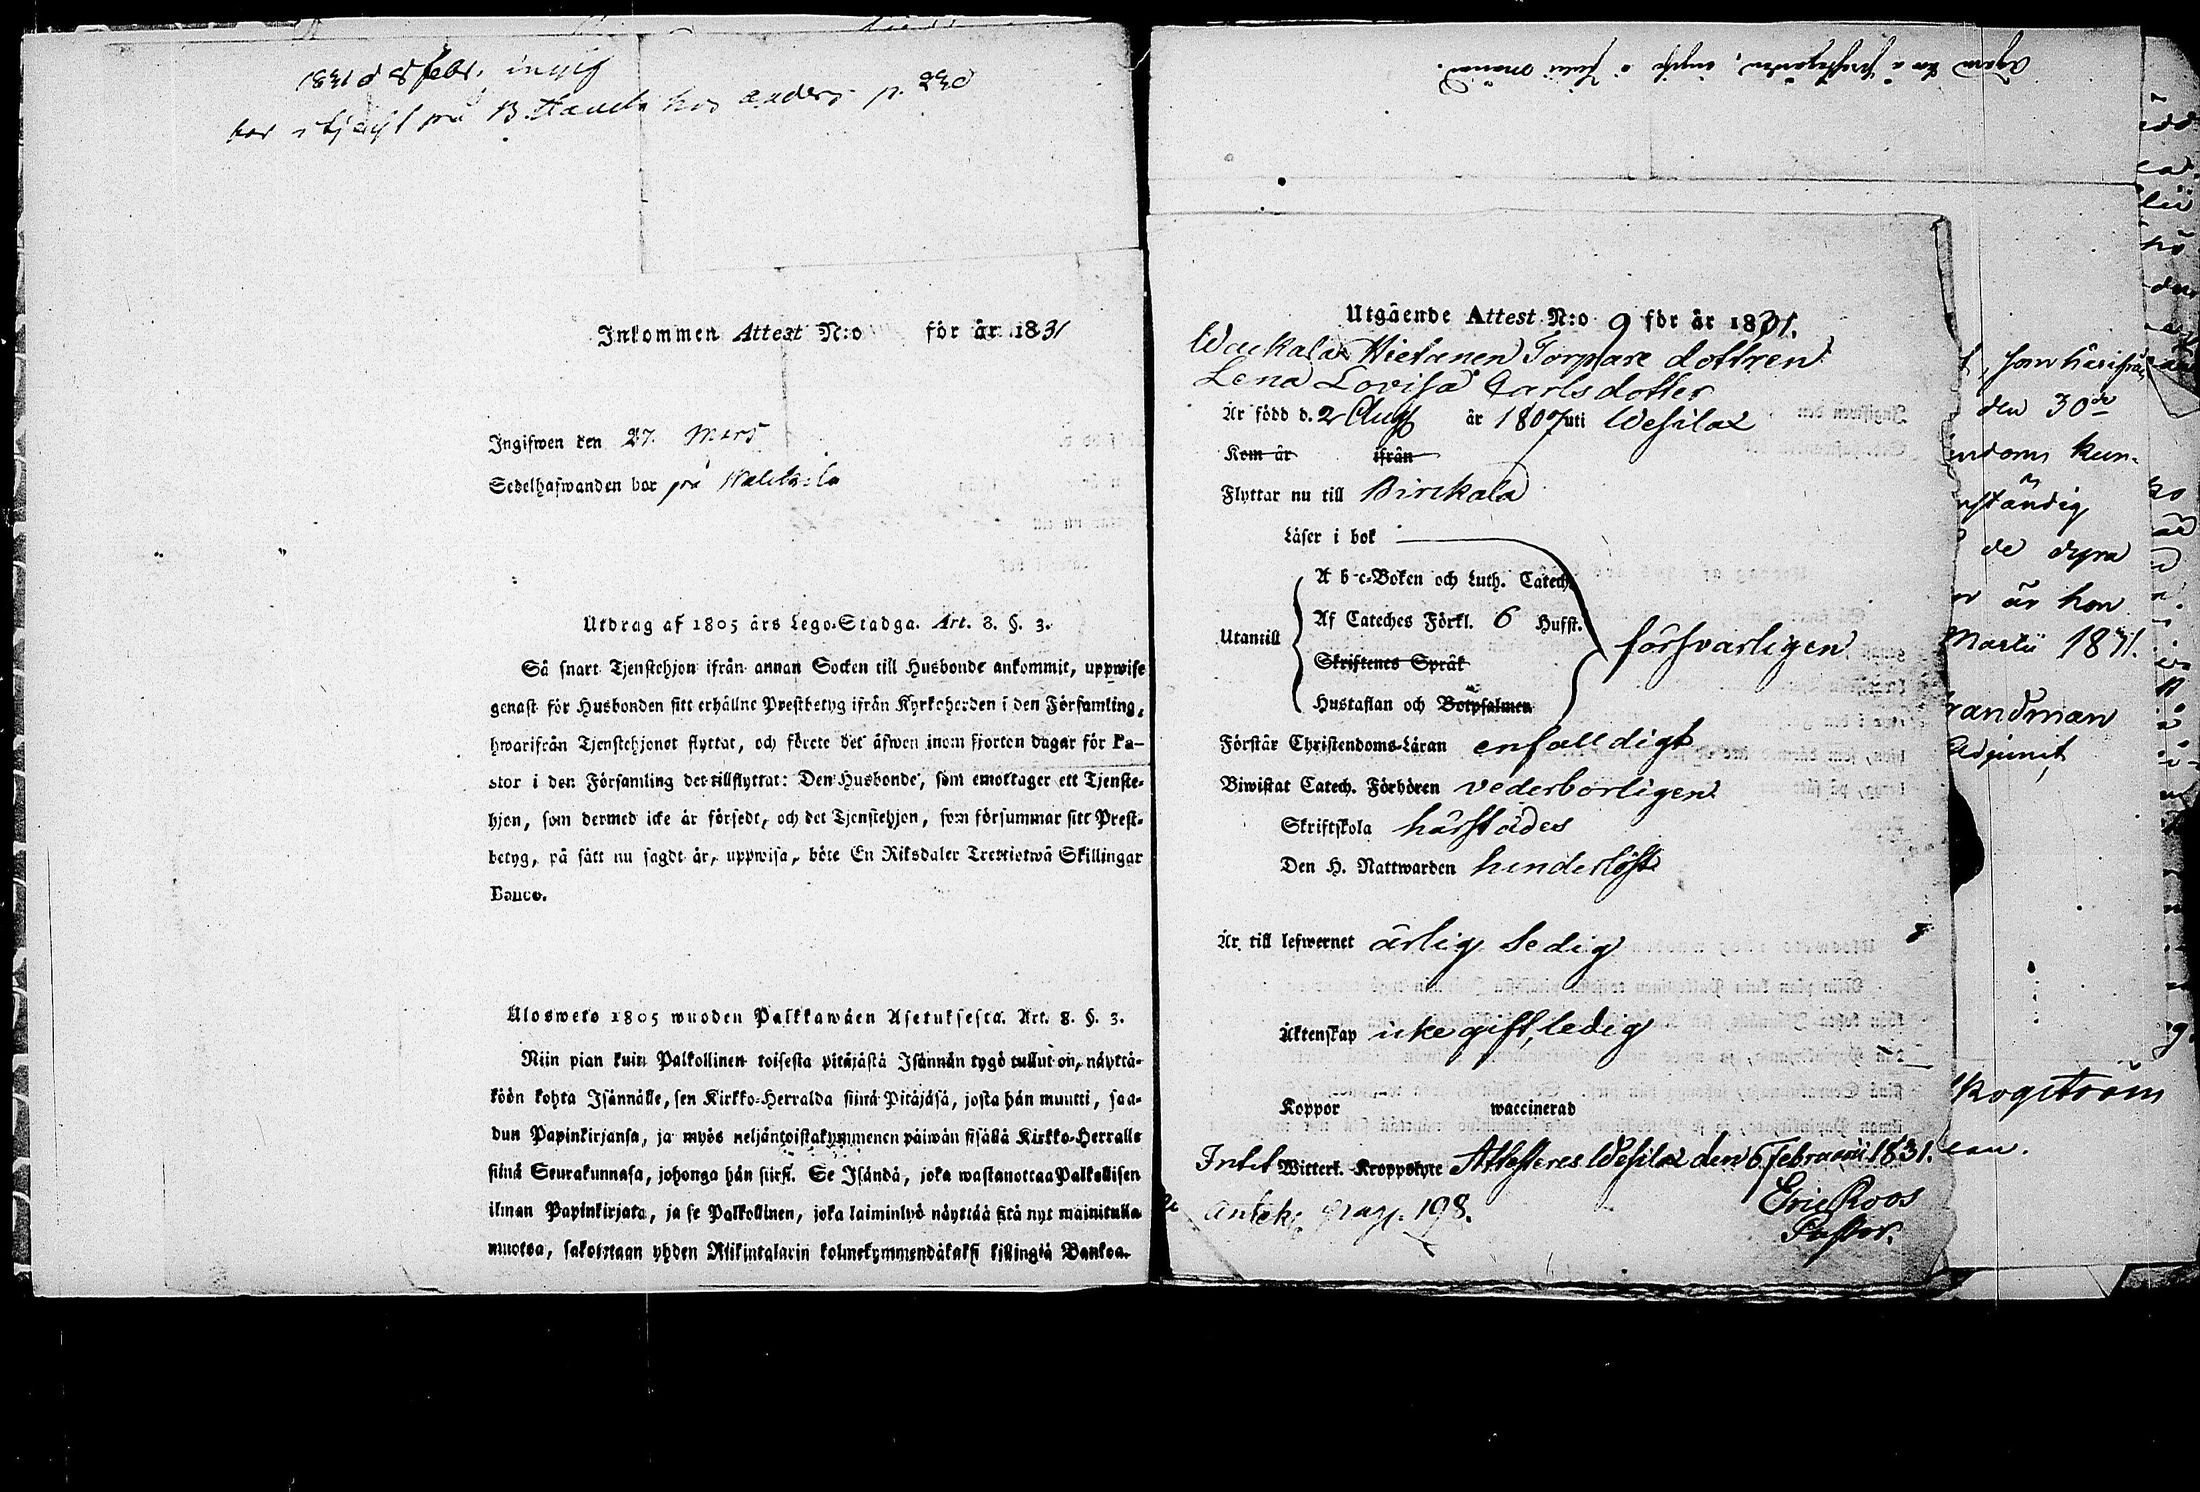 1831 d 8 febr. ingif
bor i tjenst på B. hos Anders p. 230
Inkommen Attest N:o för år 1831
Ingifwen den 27. Mars
Sedelhafwanden bor på
Utdrag af 1805 års Lego-Stadga. Art. 8. §. 3.
Så snart Tjenstehjon ifrån annan Socken till Husbonde ankommit, uppwise
genast för Husbonden sitt erhållne Prestbetyg ifrån Kyrkoherden i den Församling,
hwarifrån Tjenstehjonet flyttat, och förete det äfwen inom fjorton dagar för Pa-
stor i den Församling det tillflyttat: Den Husbonde, som emottager ett Tjenste-
hjon, som dermed icke är försedt, och det Tjenstehjon, som försummar sitt Prest-
betyg, på sätt nu sagdt är, uppwisa, böte En Riksdaler Trettiotwå Skillingar
Banco.
Ulosweto 1805 wuoden Palkkawäen Asetuksesta. Art. 8. §. 3.
Niin pian kuin Palkollinen toisesta pitäjästä Isännän tygö tullut on, näyttä-
köön kohta Isännälle, sen Kirkko-Herralda siinä Pitäjäsä, josta hän muutti, saa-
dun Papinkirjansa, ja myös neljäntoistakymmenen päiwän sisällä Kirkko-Herralle
siinä Seurakunnasa, johonga hän siirsi. Se Isändä, joka wastanottaa Palkollisen
ilman Papinkirjata, ja se Palkollinen, joka laiminlyö näyttää sitä nyt mainitulla
muotoa, sakotetaan yhden Riikintalarin kolmekymmendäkaksi killingiä Bankoa.
Utgående Attest N:o 9 för år 1831.
Hietanen Torpare dottren
Lena Lovisa Carlsdotter
Är född d. 2 Aug år 1807 uti Wesilax
Kom år ifrån
Flyttar nu till Birckala
Läser i bok
A b c-Boken och Luth. Catech.
Utantill Af Cateches Förkl. 6 Hufst. försvarligen
Skriftenes Språk
Hustaflan och Botpsalmen
Förstår Christendoms-Läran enfalldigt
Biwistat Catech. Förhören vederbörligen
Skriftskola härstädes
Den H. Nattwarden hinderlöst
Är till lefwernet ärlig sedig
Äktenskap icke gift, ledig
Koppor waccinerad
Intet Witterl. Kroppslyte Attesteres Wesilax den 6 Februarii 1831.
Eric Roos
pag. 198.
Pastor.
, som härifrån
den 30de
ndoms kun-
nständig
de dyra
är hon
Martii 1831.
randman
Adjunct